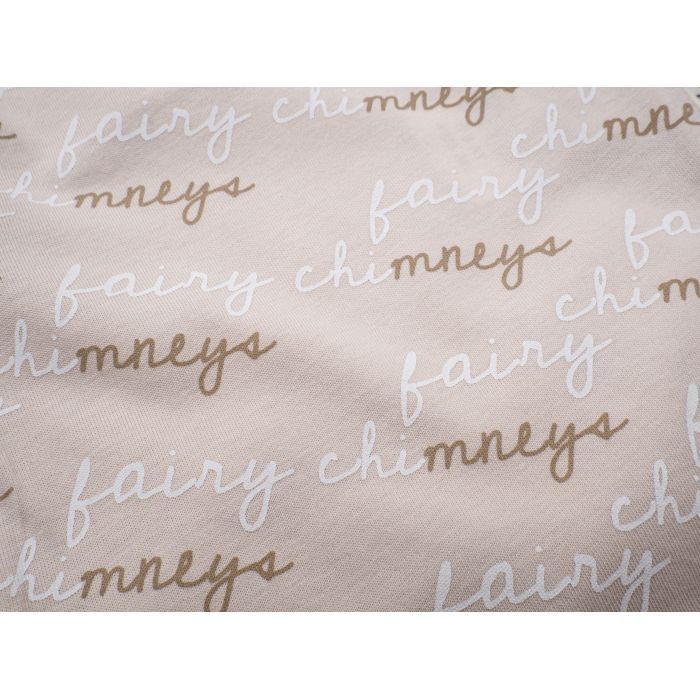 fairy chimneys
chimne
himneys
fairy
fa
fairy chimneys
chim
himneys
fairy
fairy chimneys
chim
himneys
fairy